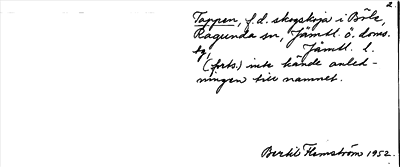 2.
Tappen, f.d. skogskoja i Böle,
Ragunda sn, Jämtl. ö. doms.
sg, Jämtl. l.
(forts.) inte kände anled-
ningen till namnet.
Bertil Flemström 1952.